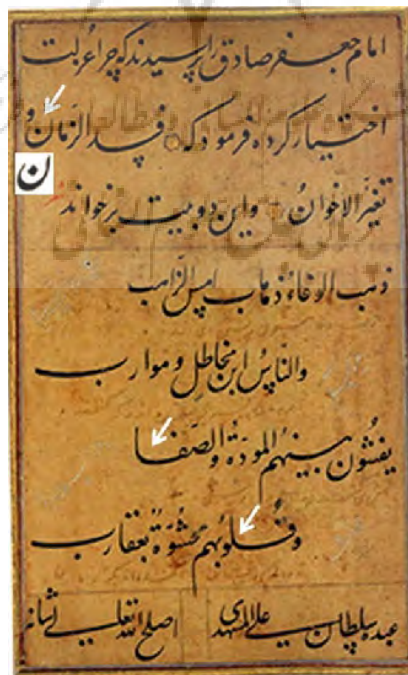 امام جعفر صادق را پرسیدند که چرا عزلت
اختیار کرده فرمود که فسد الزمان و
ن
تغیر الاخوان و این دو بیت برخواند
ذهب الوفاء ذهاب امس الذاهب
والناس بین مخاطل و موارب
یفشون بینهم المودة والصفا
وقلوبهم محشوة بعقارب
عبده سلطان علی المشهدی
اصلح الله